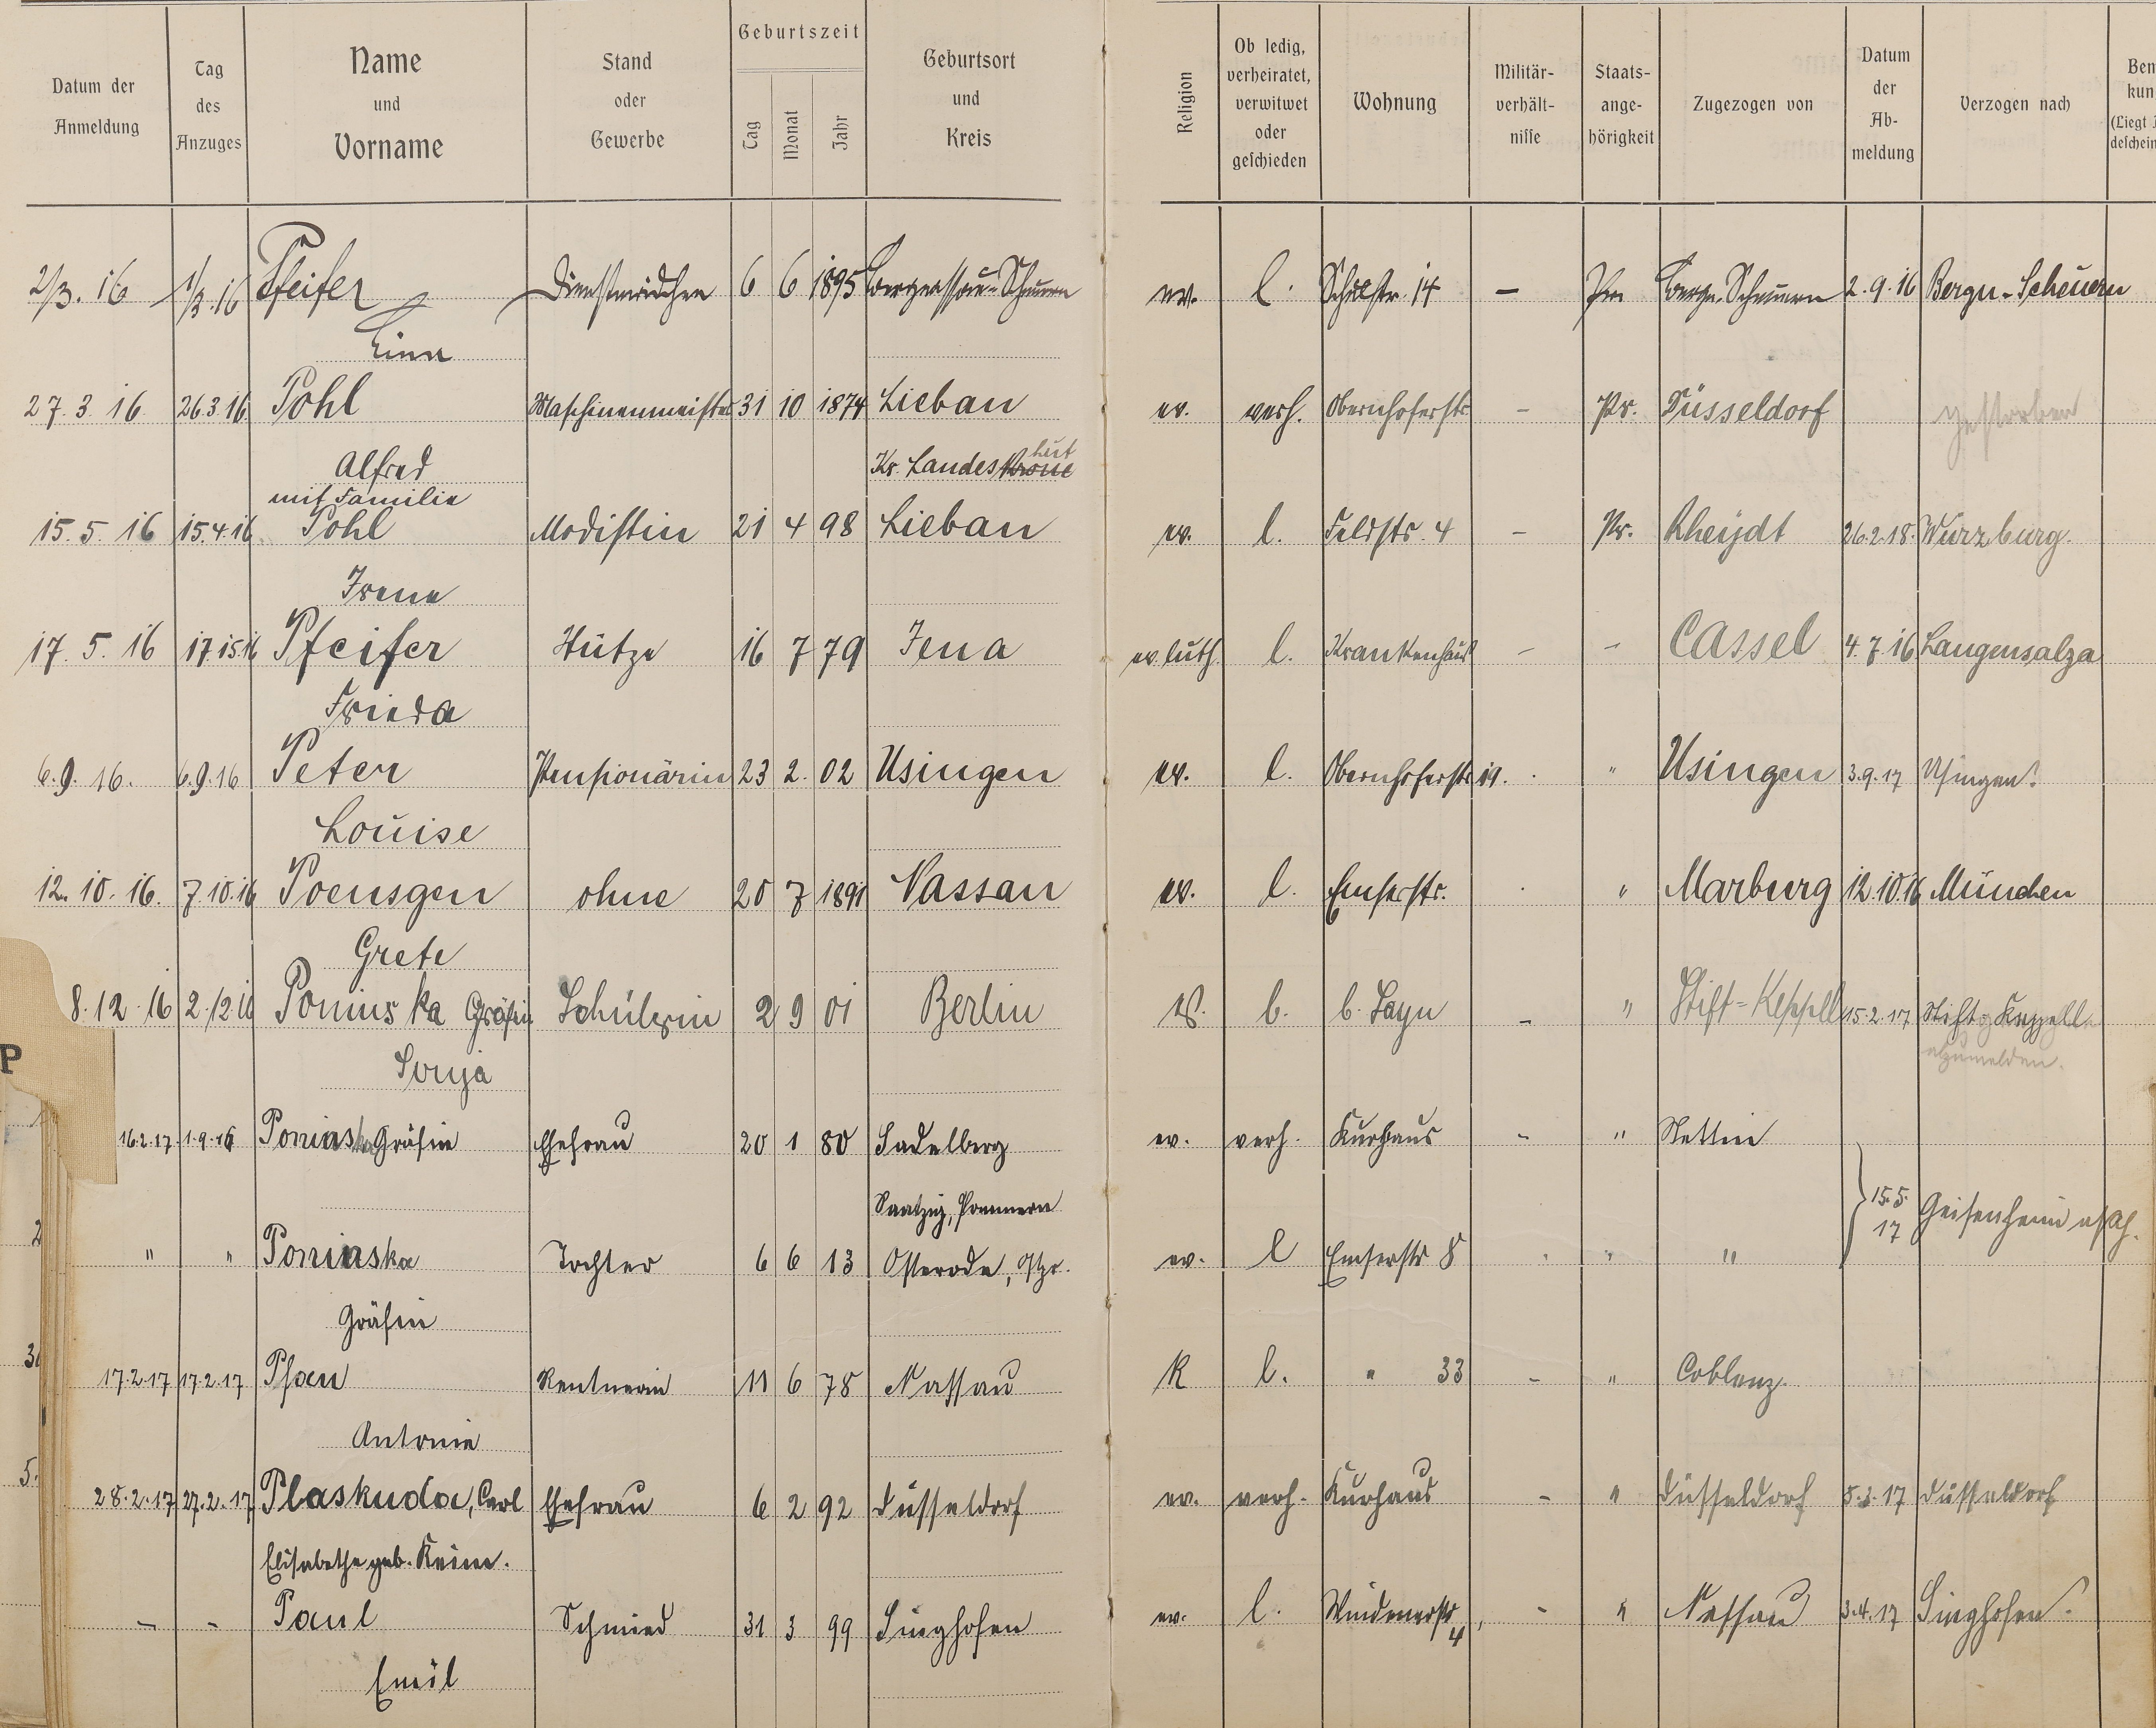 Datum der Anmeldung | Tag des Anzuges | Name und Vorname | Stand oder Gewerbe | Geburtszeit Tag Monat Jahr | Geburtsort und Kreis | Religion | Ob ledig, verheiratet, verwitwet oder geschieden | Wohnung | Militär-verhält-nisse | Staats-ange-hörigkeit | Zugezogen von | Datum der Ab-meldung | Verzogen nach
2/3. 16 1/3. 16 Pfeifer Dienstmädchen 6 6 1895 Bergnassau-Scheuern ev. l. Schulstr. 14 – Pr. Bergn. Scheuern 2. 9. 16 Bergn.-Scheuern
Lina
27. 3. 16. 26.3.16 Pohl Maschinenmeister 31 10 1874 Liebau ev. verh. Obernhoferstr. – Pr. Düsseldorf gestorben
Alfred Kr. Landeskrone hut
mit Familie
15. 5. 16 15.4.16 Pohl Modistin 21 4 98 Liebau ev. l. Feldstr. 4 – Pr. Rheydt 26.2.18. Würzburg.
Irene
17. 5. 16 Pfeifer Stütze 16 7 79 Jena ev. luth. l. Krankenhaus – – Cassel 4. 7. 16 Langensalza
Frieda
6. 9. 16. 6.9.16 Peter Pensionärin 23 2. 02 Usingen ev. l. Obernhoferstr. 19. " Usingen 3.9.17 Usingen
Louise
12. 10. 16. 7.10.16 Poensgen ohne 20 7 1891 Nassau ev. l. Emserstr. " Marburg 12.10.16 München
Grete
8. 12. 16 2.12.16 Poninska Gräfin Schülerin 2 9 01 Berlin b. Sayn – " Stift-Keppel 15.2.17 Stift-Keppel
Sonja abzumelden.
P
16.2.17 1.9.16 Poninska Gräfin Ehefrau 20 1 80 Sadelberg ev. verh. Kurhaus – " Stettin
Saatzig, Pommern 15.5. 17 Geisenheim
" " Poninska Tochter 6 6 13 Osterode, Ostpr. ev. l Emserstr 8 " "
Gräfin
17.2.17 17.2.17 Pfau Rentnerin 11 6 78 Nassau K l. " 33 – " Coblenz.
Antonie
28.2.17 27.2.17 Plaskuda, Carl Ehefrau 6 2 92 Düsseldorf ev. verh. Kurhaus – " Düsseldorf 5.3.17 Düsseldorf
Elisabethe geb. Keim.
– – Paul Schmied 31 3 99 Singhofen ev. l. Windenerstr 4 – " Nassau 3.4.17 Singhofen
Emil